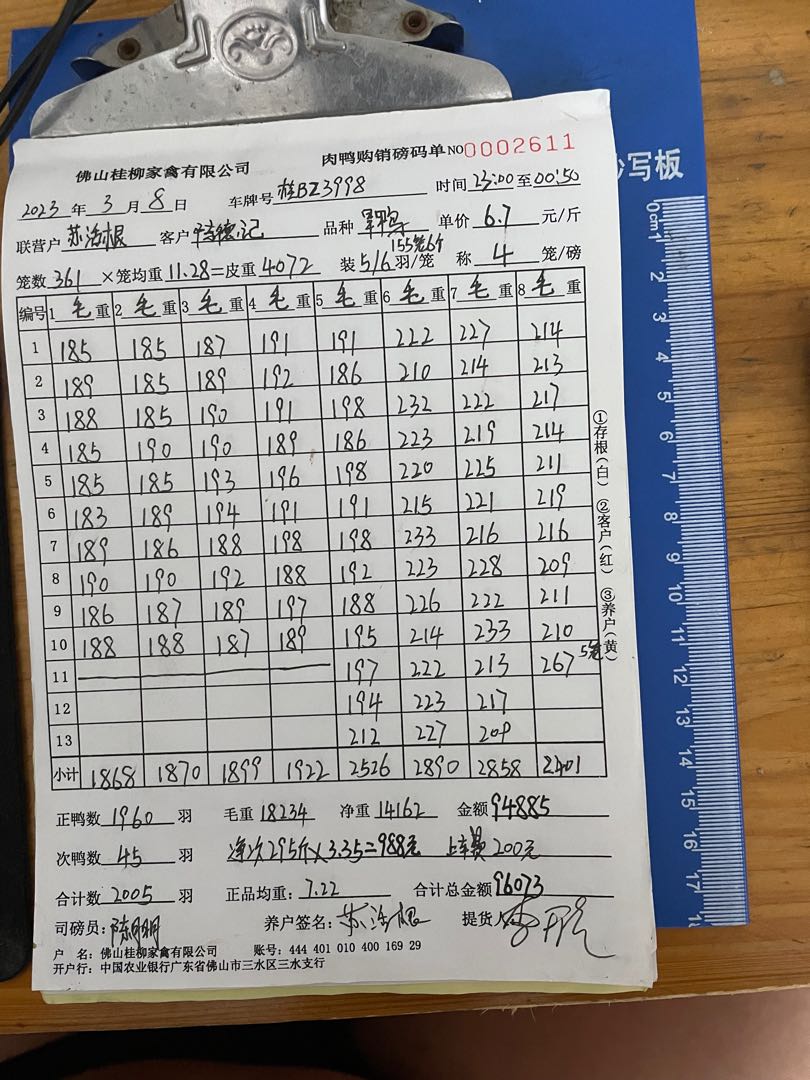 佛山桂柳家禽有限公司 肉鸭购销磅码单 NO 0002611
2023年3月8日 车牌号 桂BZ3998 时间 23:00 至 00:50
联营户 苏浩根 客户 德记 品种 单价 6.7 元/斤
155笼6个
笼数 361 ×笼均重 11.28 =皮重 4072 装 5/6 羽/笼 称 4 笼/磅
编号 1 毛重 2 毛重 3 毛重 4 毛重 5 毛重 6 毛重 7 毛重 8 毛重
1 185 185 187 191 191 222 227 214
2 189 185 189 192 186 210 214 213
3 188 185 190 191 198 232 222 217
4 185 190 190 189 186 223 219 214
5 185 185 193 196 198 220 225 211
6 183 189 194 191 191 215 221 219
7 189 186 188 198 198 233 216 216
8 190 190 192 188 192 223 228 209
9 186 187 189 197 188 226 222 211
10 188 188 187 189 195 214 233 210
11 197 222 213 267 5笼
12 194 223 217
13 212 227 209
小计 1868 1870 1899 1922 2526 2890 2858 2401
①存根(白) ②客户(红) ③养户(黄)
正鸭数 1960 羽 毛重 18234 净重 14162 金额 94885
次鸭数 45 羽 净次295斤×3.35=988元 上车费 200元
合计数 2005 羽 正品均重: 7.22 合计总金额 96073
司磅员: 陈明明 养户签名: 苏浩根 提货人
户 名: 佛山桂柳家禽有限公司 账号: 444 401 010 400 169 29
开户行: 中国农业银行广东省佛山市三水区三水支行
写板
0cm 1 2 3 4 5 6 7 8 9 10 11 12 13 14 15 16 17